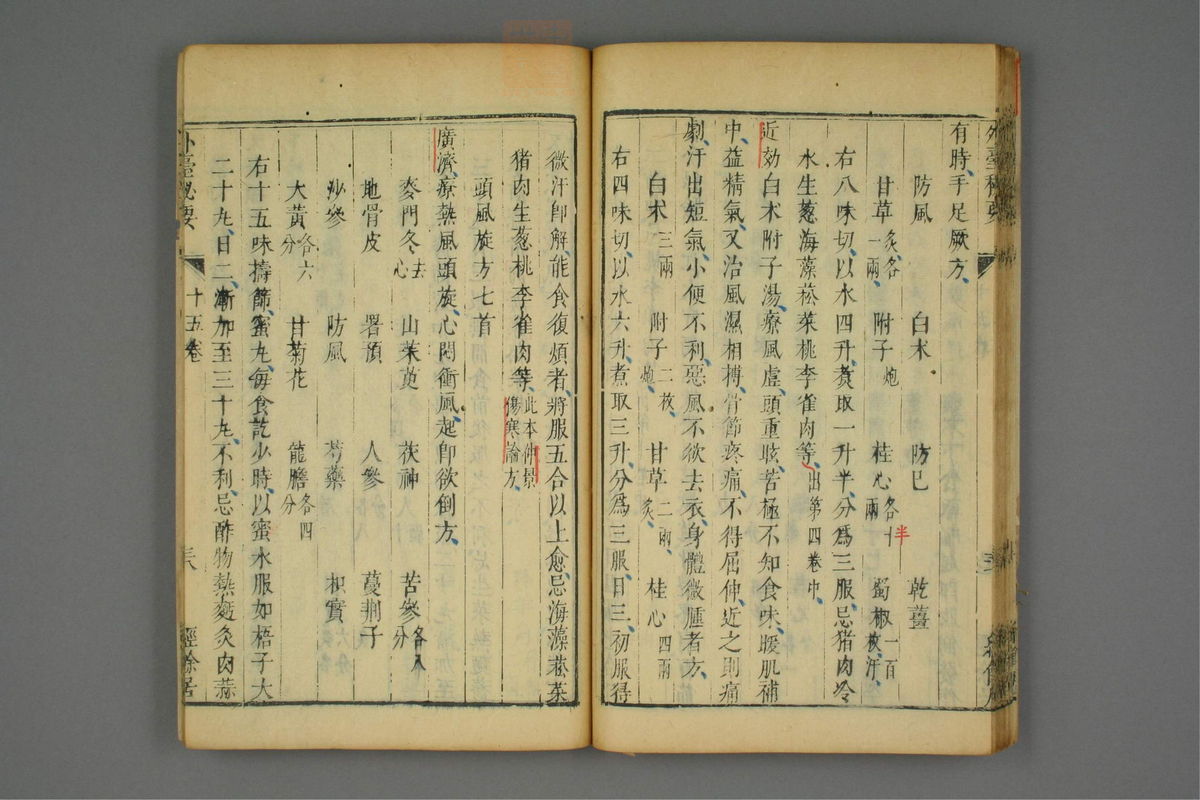 有時、手足厥方、
防風 白朮 防巳 乾薑
甘草炙、各一兩、 附子炮、 桂心各十兩、 半 蜀椒一百枚、汗、
右八味切、以水四升、煮取一升半、分爲三服、忌猪肉冷
水生葱海藻菘菜桃李雀肉等、出第四卷中、
近効白朮附子湯、療風虛、頭重眩、苦極不知食味、暖肌補
中、益精氣、又治風濕相搏、骨節疼痛、不得屈伸、近之則痛
劇、汗出短氣、小便不利、惡風不欲去衣、身體微腫者方、
白朮三兩 附子二枚、炮、 甘草二兩、炙、 桂心四兩
右四味切、以水六升、煮取三升、分爲三服、日三、初服得
微汗即解、能食復煩者、將服五合以上愈、忌海藻菘菜
猪肉生葱桃李雀肉等、此本仲景傷寒論方、
頭風旋方七首
廣濟、療熱風頭旋、心悶衝風、起即欲倒方、
麥門冬去心 山茱萸 茯神 苦參各八分
地骨皮 署預 人參 蔓荆子
沙參 防風 芍藥 枳實
大黃各六分 甘菊花 龍膽各四分
右十五味擣篩、蜜丸、每食訖少時、以蜜水服如梧子大
二十丸、日二、漸加至三十丸、不利、忌酢物熱麪炙肉蒜
外臺秘要 十五卷 經餘居